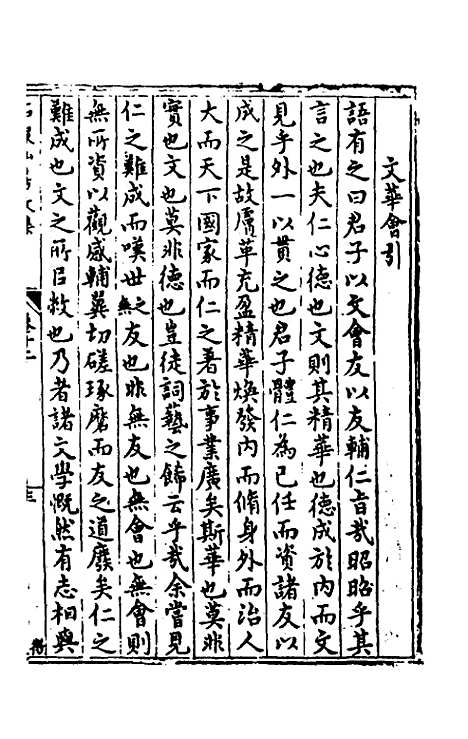 文華會引
語有之曰君子以文會友以友輔仁旨哉昭昭乎其
言之也夫仁心德也文則其精華也德成於內而文
見乎外一以貫之也君子體仁為己任而資諸友以
成之是故膚革充盈精華煥發內而脩身外而治人
大而天下國家而仁之著於事業廣矣斯華也莫非
實也文也莫非德也豈徒詞藝之飾云乎哉余嘗見
仁之難成而嘆世之無友也非無友也無會也無會則
無所資以觀感輔冀切磋琢磨而友之道廢矣仁之
難成也文之所以敝也乃者諸文學慨然有志相與
卷十二